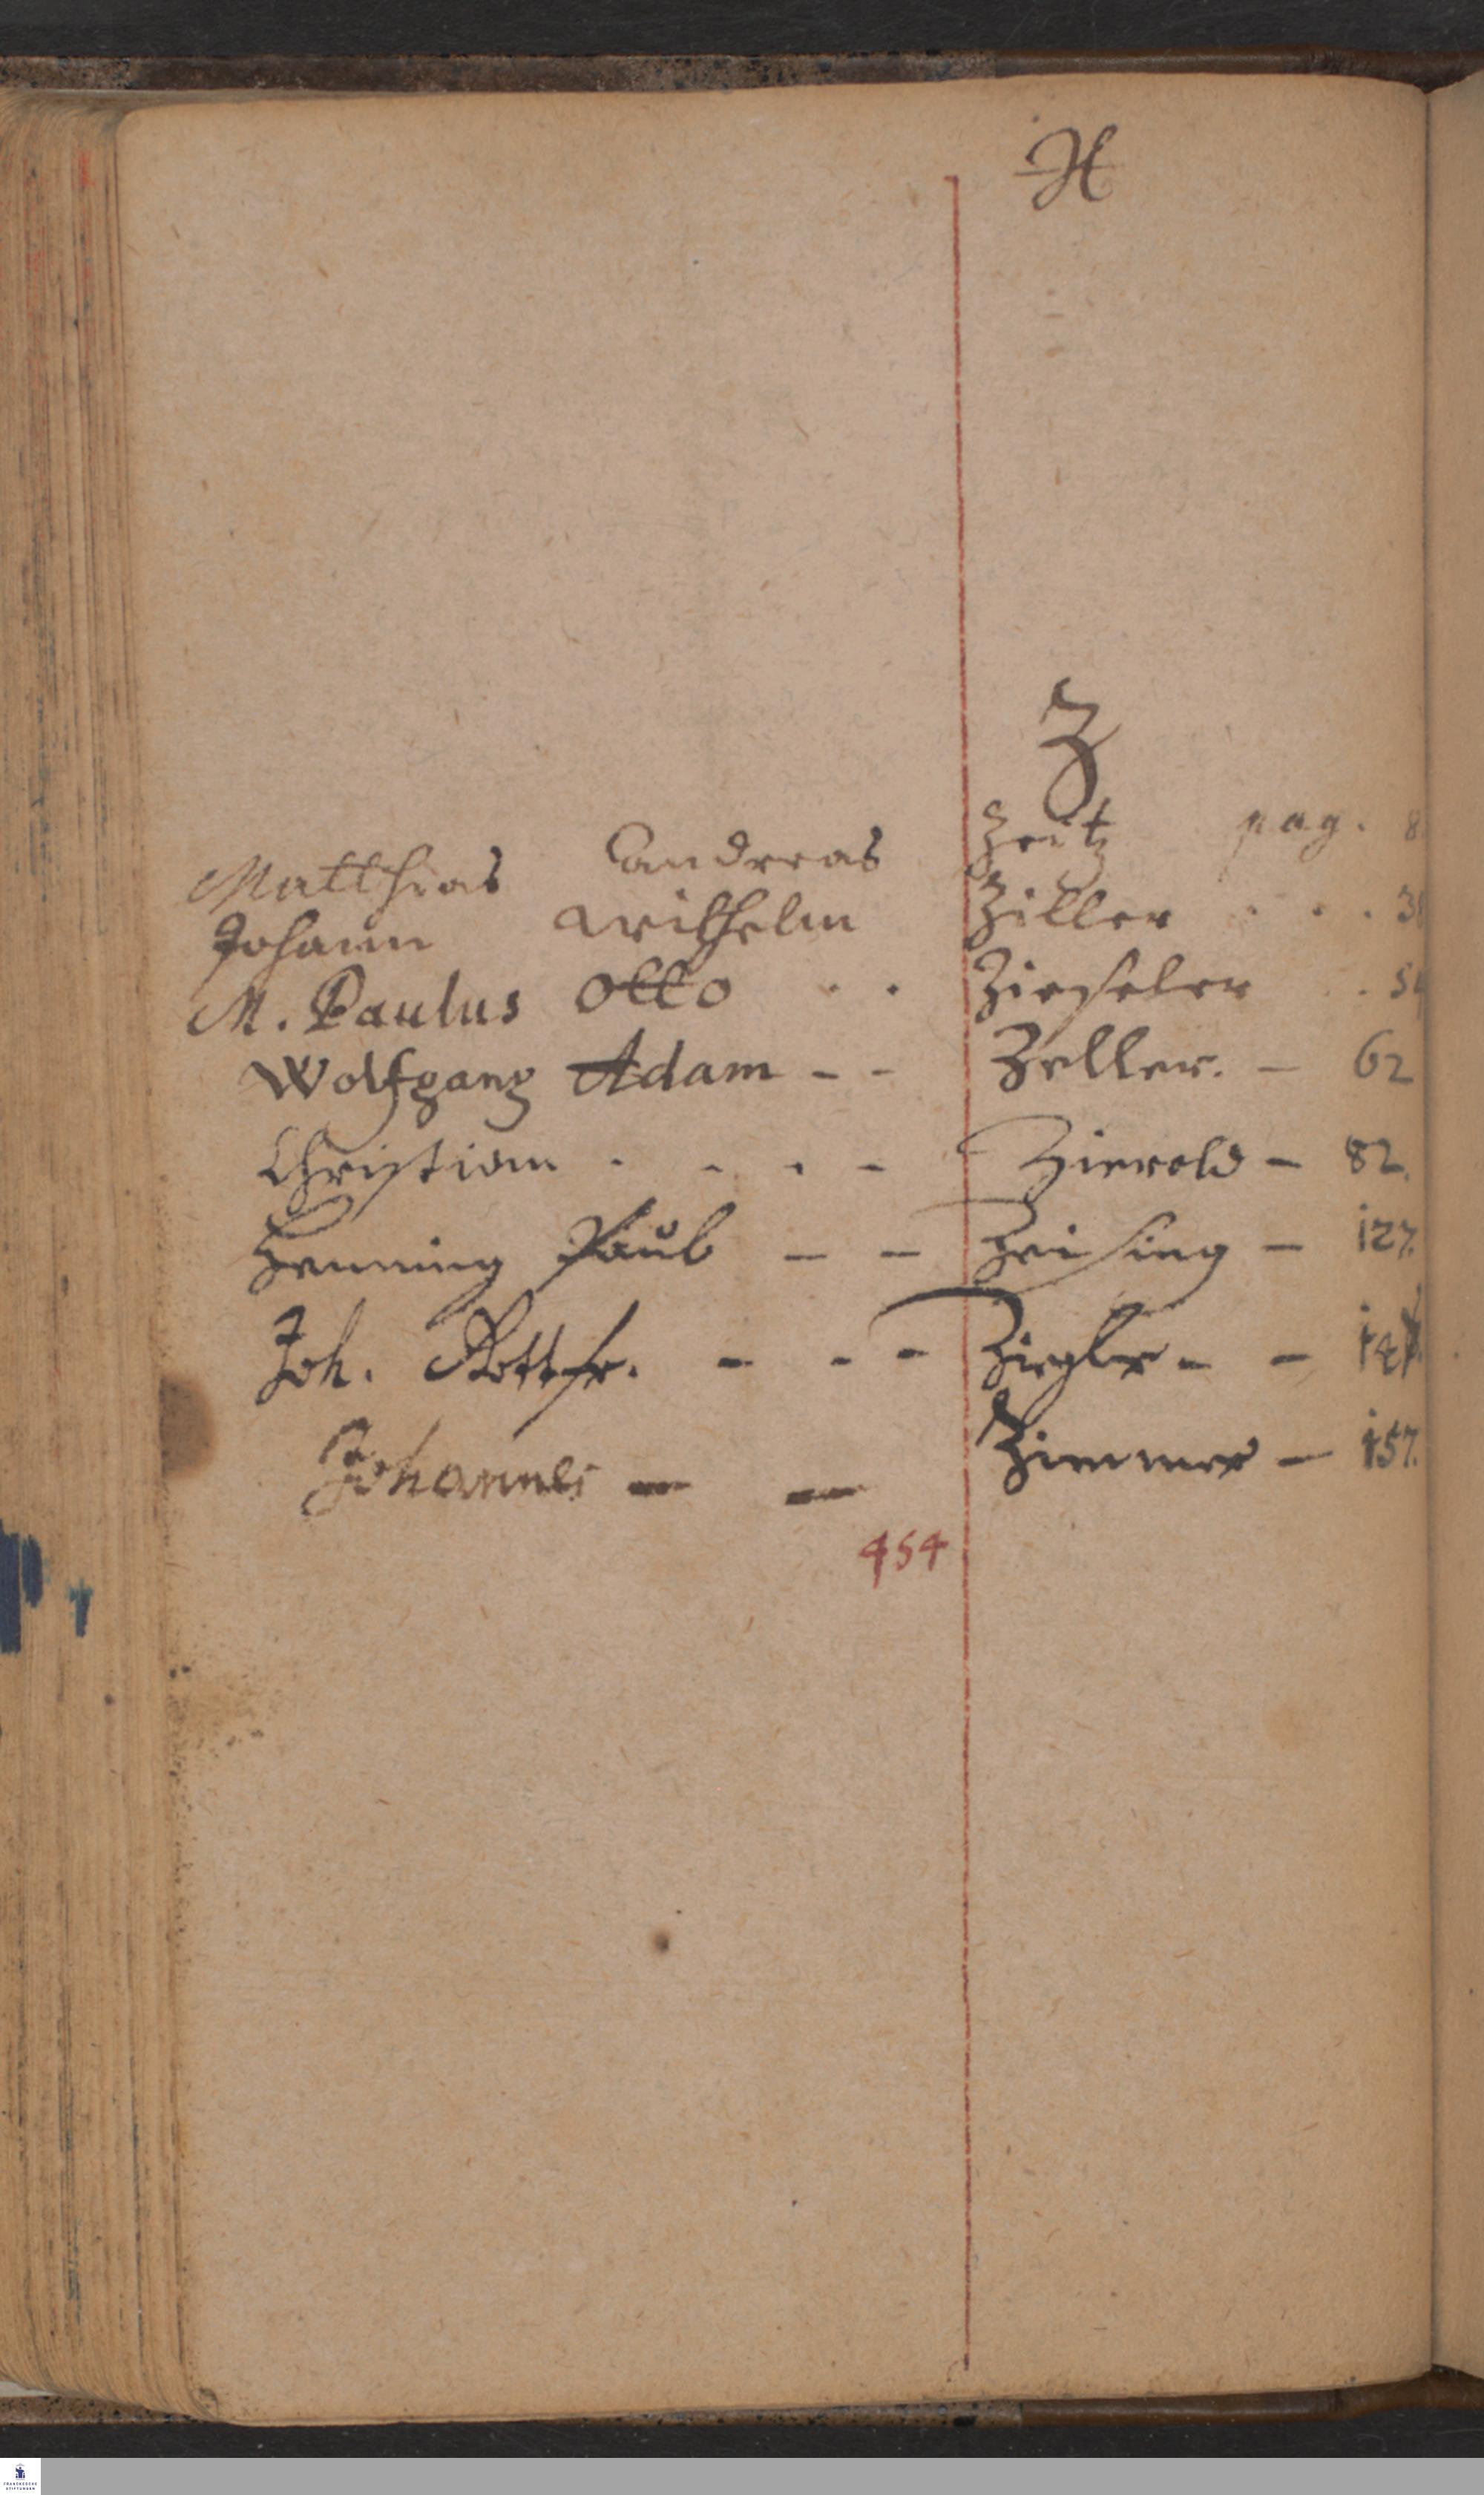 Matthias Andreas Zeitz pag. 8
Johann Wilhelm Ziller . . . 3
M. Paulus Otto . . Ziescheler . . 5
Wolfgang Adam - - Zeller. - 62
Christian . - . - Zierold - 82.
Henning Paul - - Zeising - 127.
Joh. Gottfr. - - - Ziegler - - 141.
Johannes - - Zimmer - 157.
454
Z